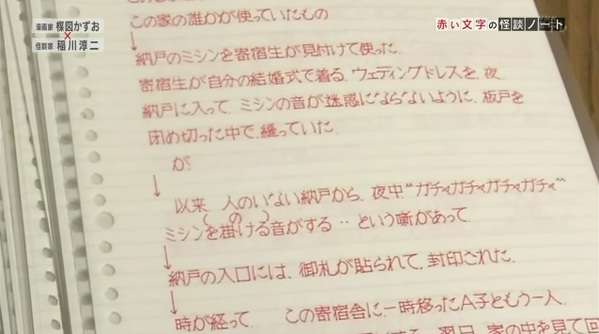 漫画家 楳図かずお
×
怪談家 稲川淳二
赤い文字の怪談ノート
この家の誰かが使っていたもの
↓
納戸のミシンを寄宿生が見付けて使った.
寄宿生が自分の結婚式で着る,ウェディングドレスを,夜
納戸に入って,ミシンの音が迷惑にならないように,板戸を
閉め切った中で,縫っていた.
が,
↓
以来 人のいない納戸から,夜中,"ガチャガチャガチャガチャ"
ミシンを掛ける音がする‥という噺があって
↓
納戸の入口には,御札が貼られて,封印された.
↓
時が経って この寄宿舎に一時移ったA子ともう一人.
翌日 家の中を見て回